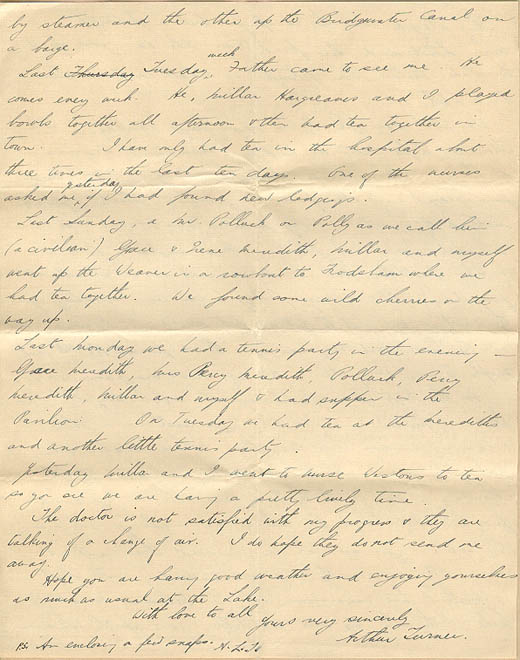 by steamer and the other up the Bridgwater Canal on
a barge.
Last Thursday Tuesday week, Father came to see me. He
comes every week. He, Millar Hargreaves and I played
bowls together all afternoon & then had tea together in
town. I have only had tea in the hospital about
three times in the last ten days. One of the nurses
asked me yesterday, if I had found new lodgings.
Last Sunday, a Mr. Polluck or Polly as we call him
(a civilian) Grace & Irene Meredith, Millar and myself
went up the Weaver in a rowboat to Frodsham where we
had tea together. We found some wild cherries on the
way up.
Last Monday we had a tennis party in the evening —
Grace Meredith, Mrs Percy Meredith, Polluck, Percy
Meredith, Millar and myself & had supper in the
Pavilion. On Tuesday we had tea at the Merediths
and another little tennis party.
Yesterday Millar and I went to Nurse Westons to tea
so you see we are having a pretty lively time.
The doctor is not satisfied with my progress & they are
talking of a change of air. I do hope they do not send me
away.
Hope you are having good weather and enjoying yourselves
as much as usual at the Lake.
With love to all
Yours very sincerely
Arthur Turner.
P.S. Am enclosing a few snaps.